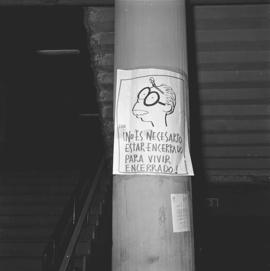 ¡NO ES NECESARIO
ESTAR ENCERRADO
PARA VIVIR
ENCERRADO!